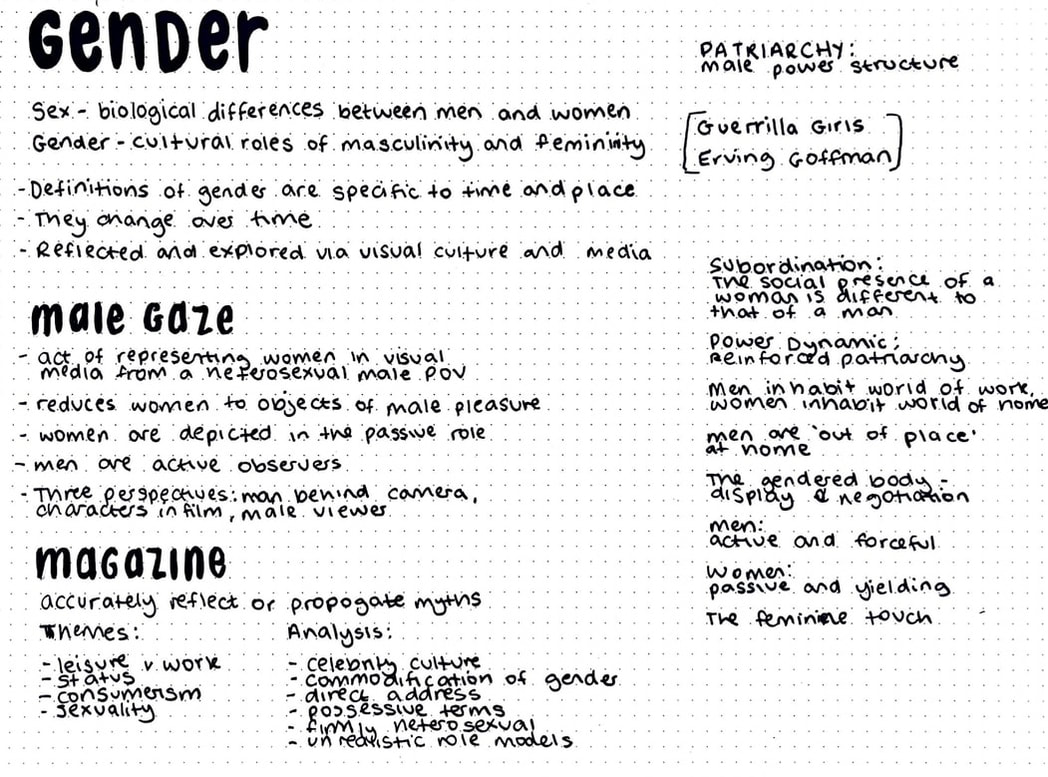 Gender
Sex - biological differences between men and women
Gender - cultural roles of masculinity and femininity
- Definitions of gender are specific to time and place
- They change over time
- Reflected and explored via visual culture and media
male Gaze
- act of representing women in visual
media from a heterosexual male POV
- reduces women to objects of male pleasure
- women are depicted in the passive role
- men are active observers
- Three perspectives: man behind camera,
characters in film, male viewer
magazine
accurately reflect or propogate myths
Themes:
- leisure v work
- status
- consumerism
- sexuality
Analysis:
- celebrity culture
- commodification of gender
- direct address
- possessive terms
- firmly heterosexual
- unrealistic role models
PATRIARCHY:
male power structure
[Guerrilla Girls
Erving Goffman]
Subordination:
The social presence of a
woman is different to
that of a man
Power Dynamic:
Reinforced patriarchy
Men inhabit world of work,
women inhabit world of home
men are 'out of place'
at home
The gendered body -
display & negotiation
men:
active and forceful
Women:
passive and yielding
The feminine touch